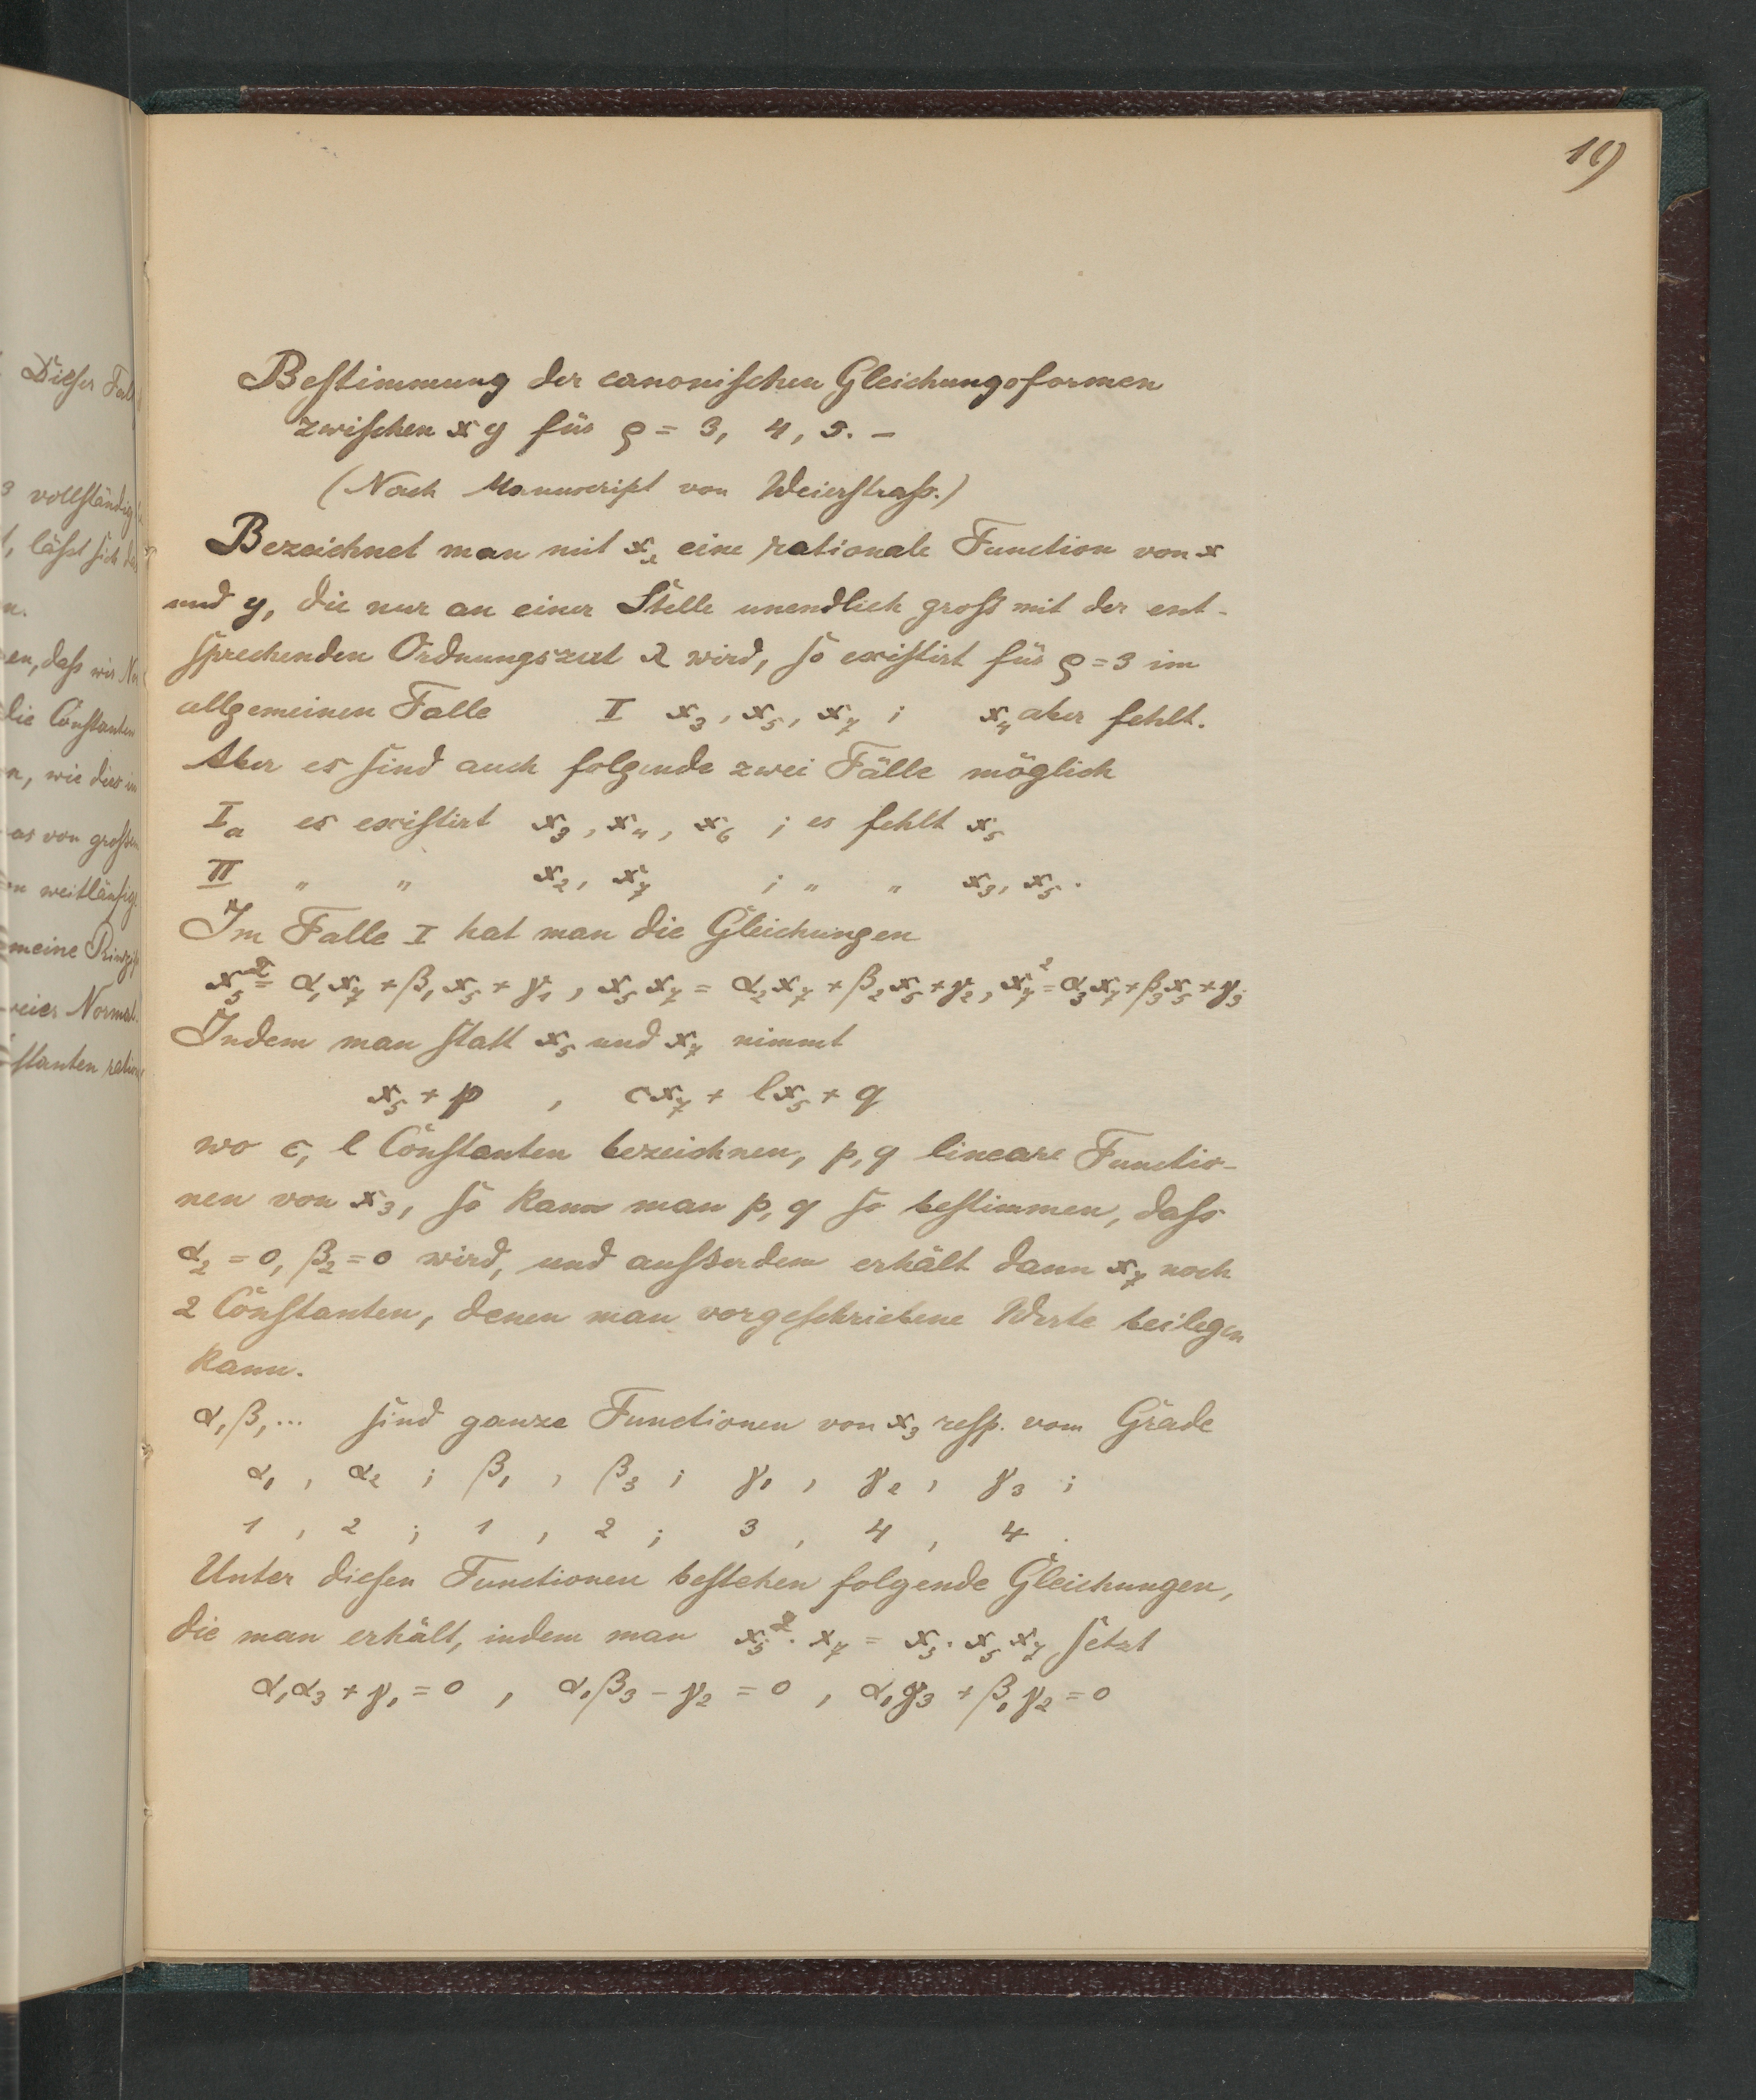 19
Bestimmung der canonischen Gleichungsformen
zwischen x y für ϱ = 3, 4, 5. –
(Nach Manuscript von Weierstraß.)
Bezeichnet man mit x_λ eine rationale Function von x
und y, die nur an einer Stelle unendlich gross mit der ent-
sprechenden Ordnungszal λ wird, so existirt für ϱ = 3 im
allgemeinen Falle I x₃, x₅, x₇ ; x₄ aber fehlt.
Aber es sind auch folgende zwei Fälle möglich
I_a es existirt x₃, x₄, x₆ ; es fehlt x₅
II " " x₂, x₇ ; " " x₃, x₅.
Im Falle I hat man die Gleichungen
x₅² = α₁x₇ + β₁x₅ + γ₁, x₅x₇ = α₂x₇ + β₂x₅ + γ₂, x₇² = α₃x₇ + β₃x₅ + γ₃.
Indem man statt x₅ und x₇ nimmt
x₅ + p , cx₇ + lx₅ + q
wo c, l Constanten bezeichnen, p, q lineare Functio-
nen von x₃, so kann man p, q so bestimmen, dass
α₂ = 0, β₂ = 0 wird, und ausserdem erhält dann x₇ noch
2 Constanten, denen man vorgeschriebene Werte beilegen
kann.
α, β, ... sind ganze Functionen von x₃ resp. vom Grade
α₁ , α₂ ; β₁ , β₃ ; γ₁ , γ₂ , γ₃ ;
1 , 2 ; 1 , 2 ; 3 , 4 , 4 .
Unter diesen Functionen bestehen folgende Gleichungen,
die man erhält, indem man x₅² · x₇ = x₅ · x₅ x₇ setzt
α₁α₃ + γ₁ = 0 , α₁β₃ – γ₂ = 0 , α₁γ₃ + β₁γ₂ = 0